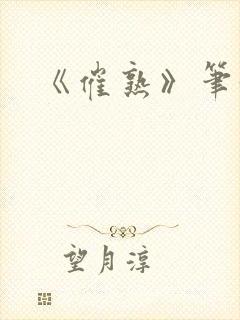 《催熟》筆
望月淳